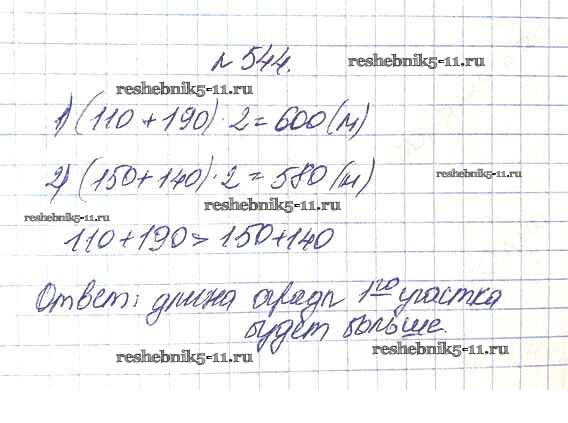 № 544.
reshebnik5-11.ru
reshebnik5-11.ru
1) (110 + 190) 2 = 600 (м)
2) (150 + 140) · 2 = 580 (м)
reshebnik5-11.ru
reshebnik5-11.ru
reshebnik5-11.ru
110 + 190 > 150 + 140
Ответ: длина ограды 1го участка
будет больше.
reshebnik5-11.ru
reshebnik5-11.ru